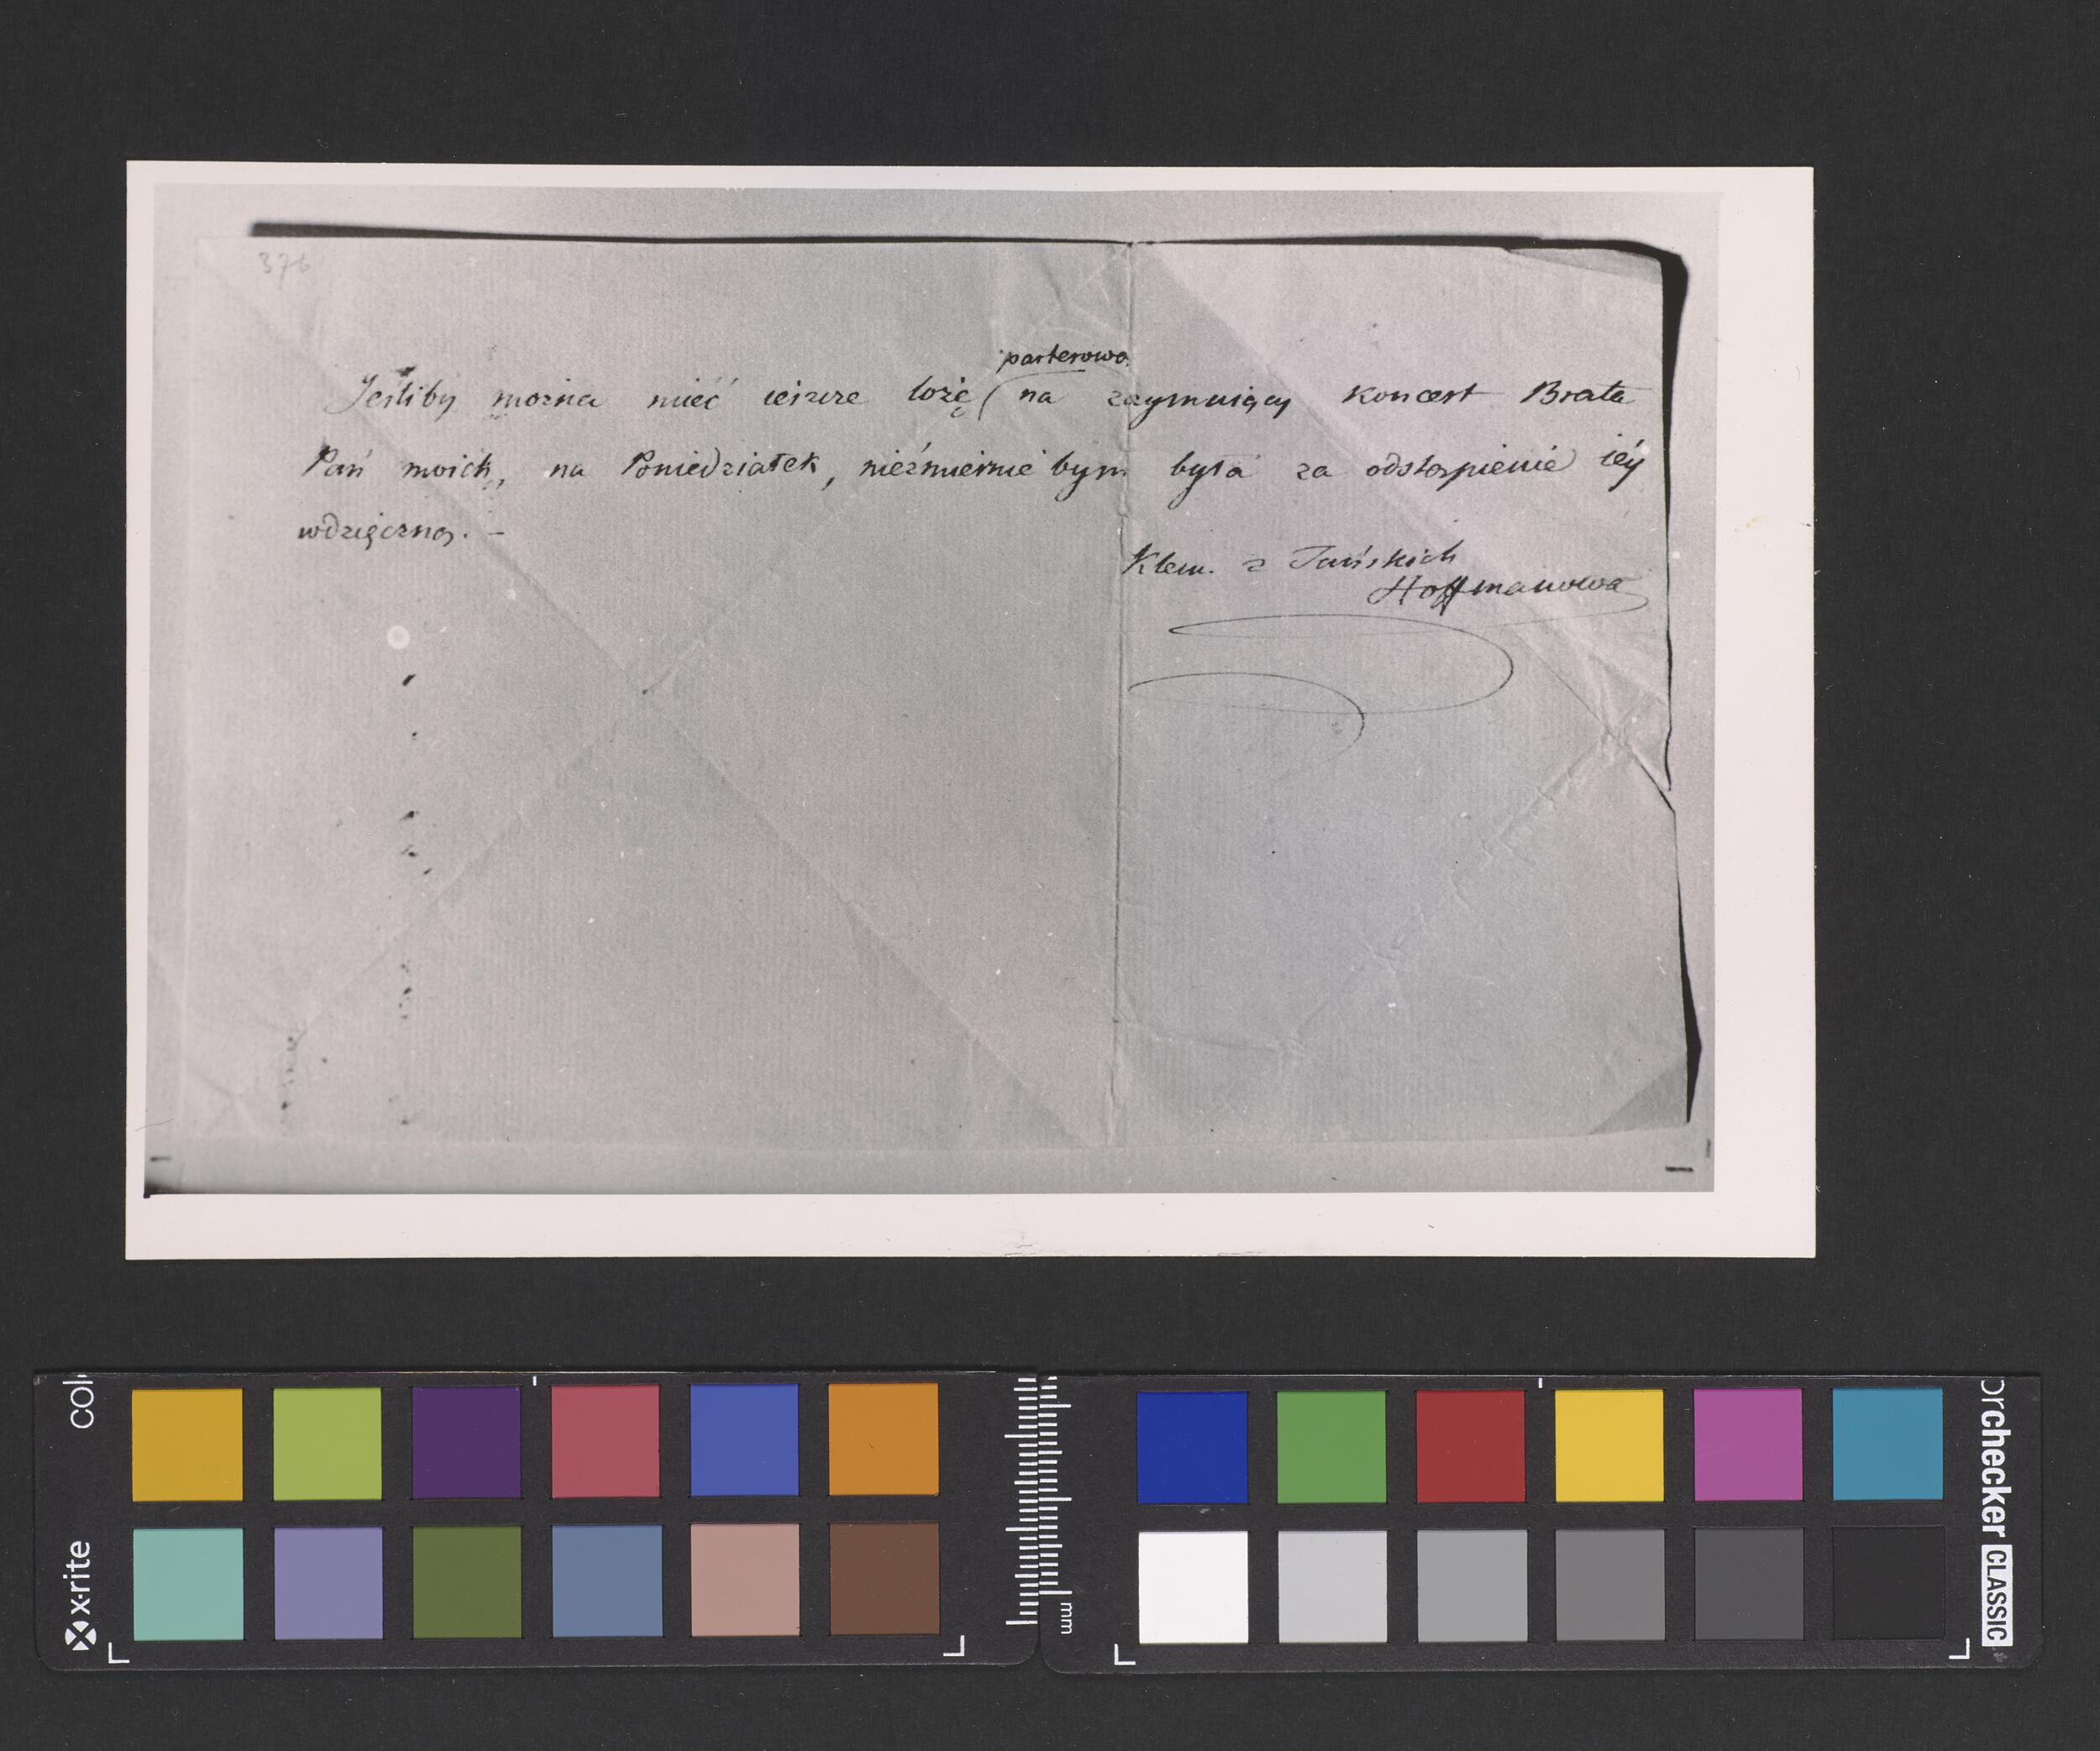 376
parterową
Jeśliby można mieć ieszcze lożę na zaymuiący koncert Brata
Pań moich, na Poniedziałek, niezmiernie bym była za odstąpienie iéy
wdzięczną. -
Klem. z Tańskich
Hoffmanowa
colorchecker CLASSIC
x-rite
mm